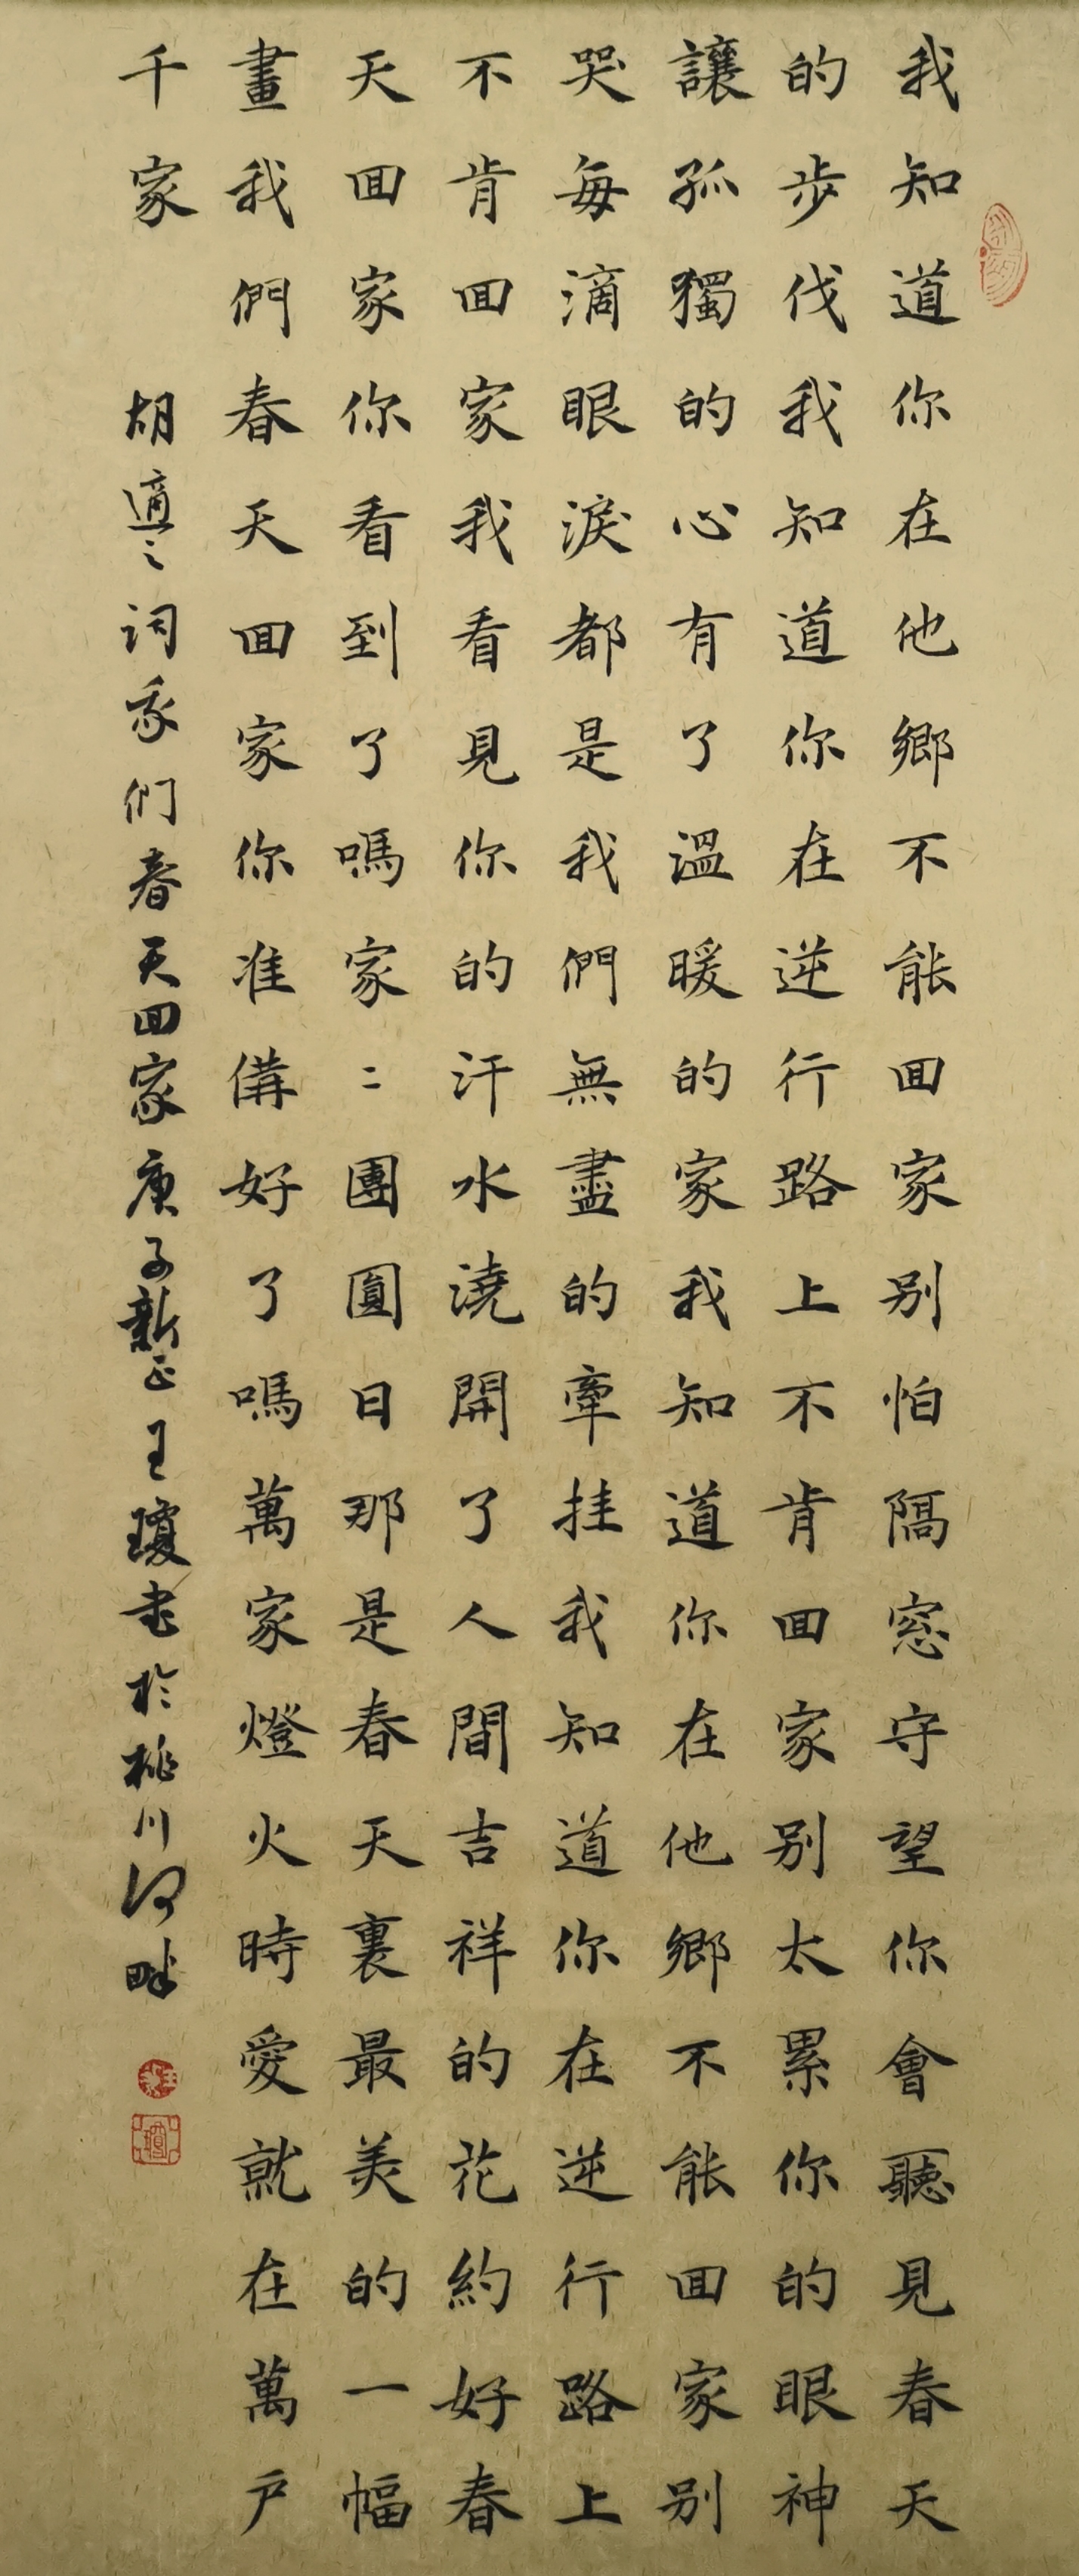 我知道你在他鄉不能回家别怕隔窓守望你會聽見春天
的步伐我知道你在逆行路上不肯回家别太累你的眼神
讓孤獨的心有了溫暖的家我知道你在他鄉不能回家别
哭每滴眼淚都是我們無盡的牽挂我知道你在逆行路上
不肯回家我看見你的汗水澆開了人間吉祥的花約好春
天回家你看到了嗎家〻團圓日那是春天裏最美的一幅
畫我們春天回家你准備好了嗎萬家燈火時愛就在萬户
千家
胡適之词我们春天回家庚子新正王瓊书於桃川河畔